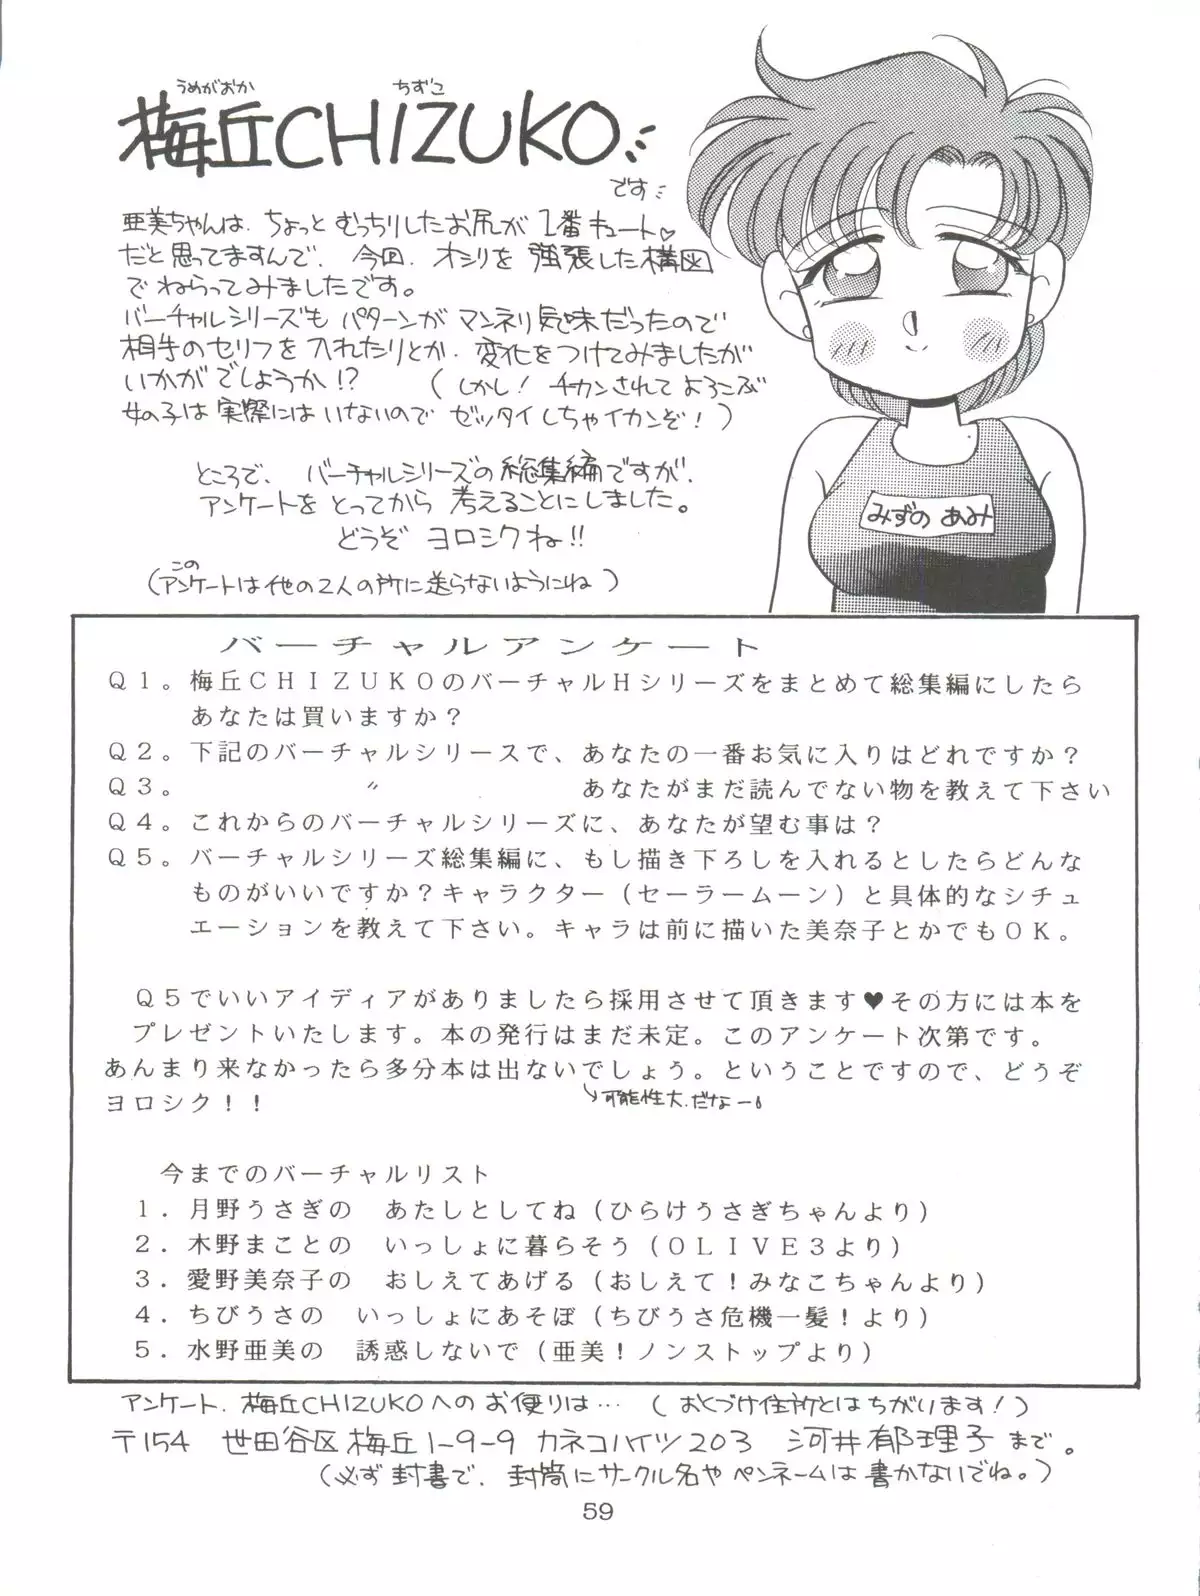 うめがおか ちずこ
梅丘CHIZUKO
です
亜美ちゃんは、ちょっとむっちりしたお尻が1番キュート♡
だと思ってますんで、今回、オシリを強張した構図
でねらってみましたです。
バーチャルシリーズもパターンがマンネリ気味だったので
相手のセリフを入れたりとか、変化をつけてみましたが
いかがでしょうか!? (しかし!チカンされてよろこぶ
女の子は実際にはいないのでゼッタイしちゃイカンぞ!)
ところで、バーチャルシリーズの総集編ですが、
アンケートをとってから考えることにしました。
どうぞヨロシクね!!
この
(アンケートは他の2人の所に送らないようにね)
みずの あみ
バーチャルアンケート
Q1。梅丘CHIZUKOのバーチャルHシリーズをまとめて総集編にしたら
あなたは買いますか?
Q2。下記のバーチャルシリースで、あなたの一番お気に入りはどれですか?
Q3。 〃 あなたがまだ読んでない物を教えて下さい
Q4。これからのバーチャルシリーズに、あなたが望む事は?
Q5。バーチャルシリーズ総集編に、もし描き下ろしを入れるとしたらどんな
ものがいいですか?キャラクター(セーラームーン)と具体的なシチュ
エーションを教えて下さい。キャラは前に描いた美奈子とかでもOK。
Q5でいいアイディアがありましたら採用させて頂きます♥その方には本を
プレゼントいたします。本の発行はまだ未定。このアンケート次第です。
あんまり来なかったら多分本は出ないでしょう。ということですので、どうぞ
ヨロシク!!
↳可能性大.だなー。
今までのバーチャルリスト
1.月野うさぎの あたしとしてね(ひらけうさぎちゃんより)
2.木野まことの いっしょに暮らそう(OLIVE3より)
3.愛野美奈子の おしえてあげる(おしえて!みなこちゃんより)
4.ちびうさの いっしょにあそぼ(ちびうさ危機一髪!より)
5.水野亜美の 誘惑しないで(亜美!ノンストップより)
アンケート、梅丘CHIZUKOへのお便りは…(おくづけ住所とはちがいます!)
〒154 世田谷区梅丘1-9-9 カネコハイツ203 河井郁理子まで。
(必ず封書で、封筒にサークル名やペンネームは書かないでね。)
59